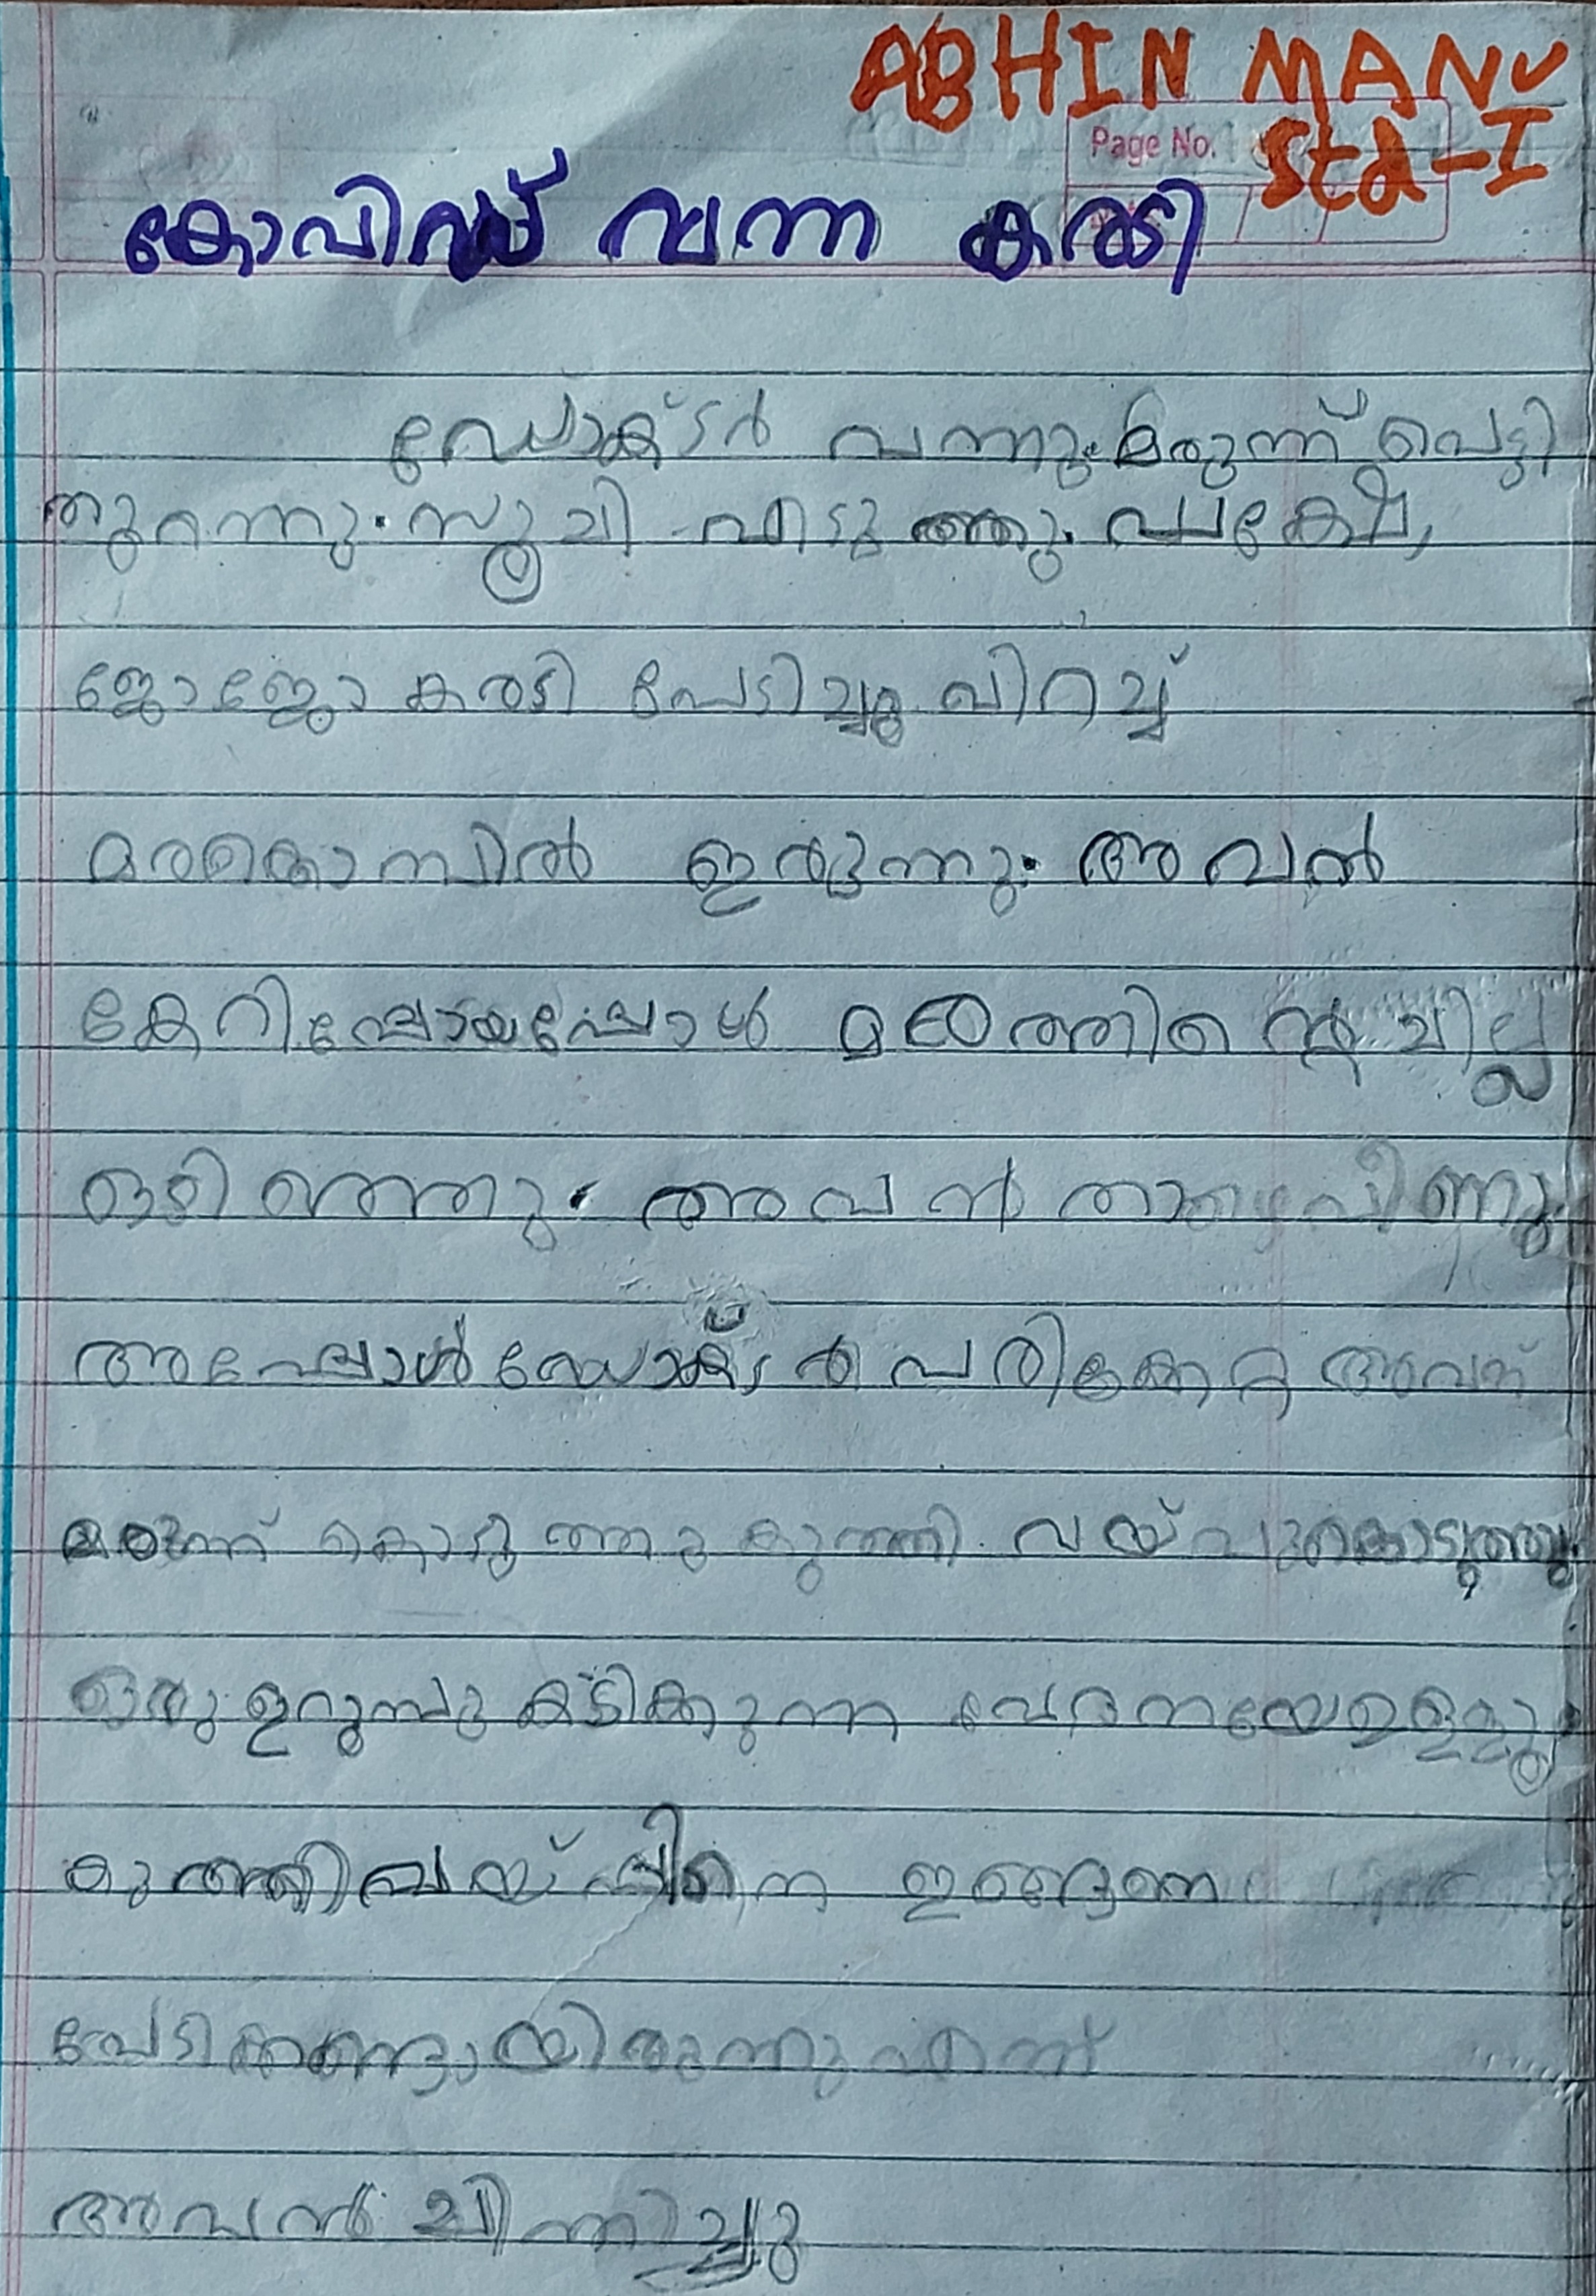 ABHIN MANU
Page No.
Std-I
കോവിഡ് വന്ന കരടി
ഡോക്ടർ വന്നു. മരുന്ന് പെട്ടി
തുറന്നു. സൂചി എടുത്തു. പക്ഷേ,
ജോജോ കരടി പേടിച്ചു വിറച്ച്
മരകൊമ്പിൽ ഇരുന്നു. അവൻ
കേറിപ്പോയപ്പോൾ മരത്തിന്റെ ചില്ല
ഒടിഞ്ഞു. അവൻ താഴെ വീണു.
അപ്പോൾ ഡോക്ടർ പരിക്കേറ്റ അവന്
മരുന്ന് കൊടുത്തു കുത്തി വയ്പും കൊടുത്തു.
ഒരു ഉറുമ്പു കടിക്കുന്ന വേദനയേ ഉള്ളു
കുത്തിവയ്പ്പിനെ ഇങ്ങനെ
പേടിക്കണ്ടായിരുന്നു എന്ന്
അവൻ ചിന്തിച്ചു